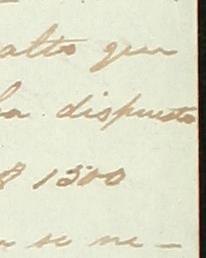 alto que
la dispuesto
$ 1500
a se ne-